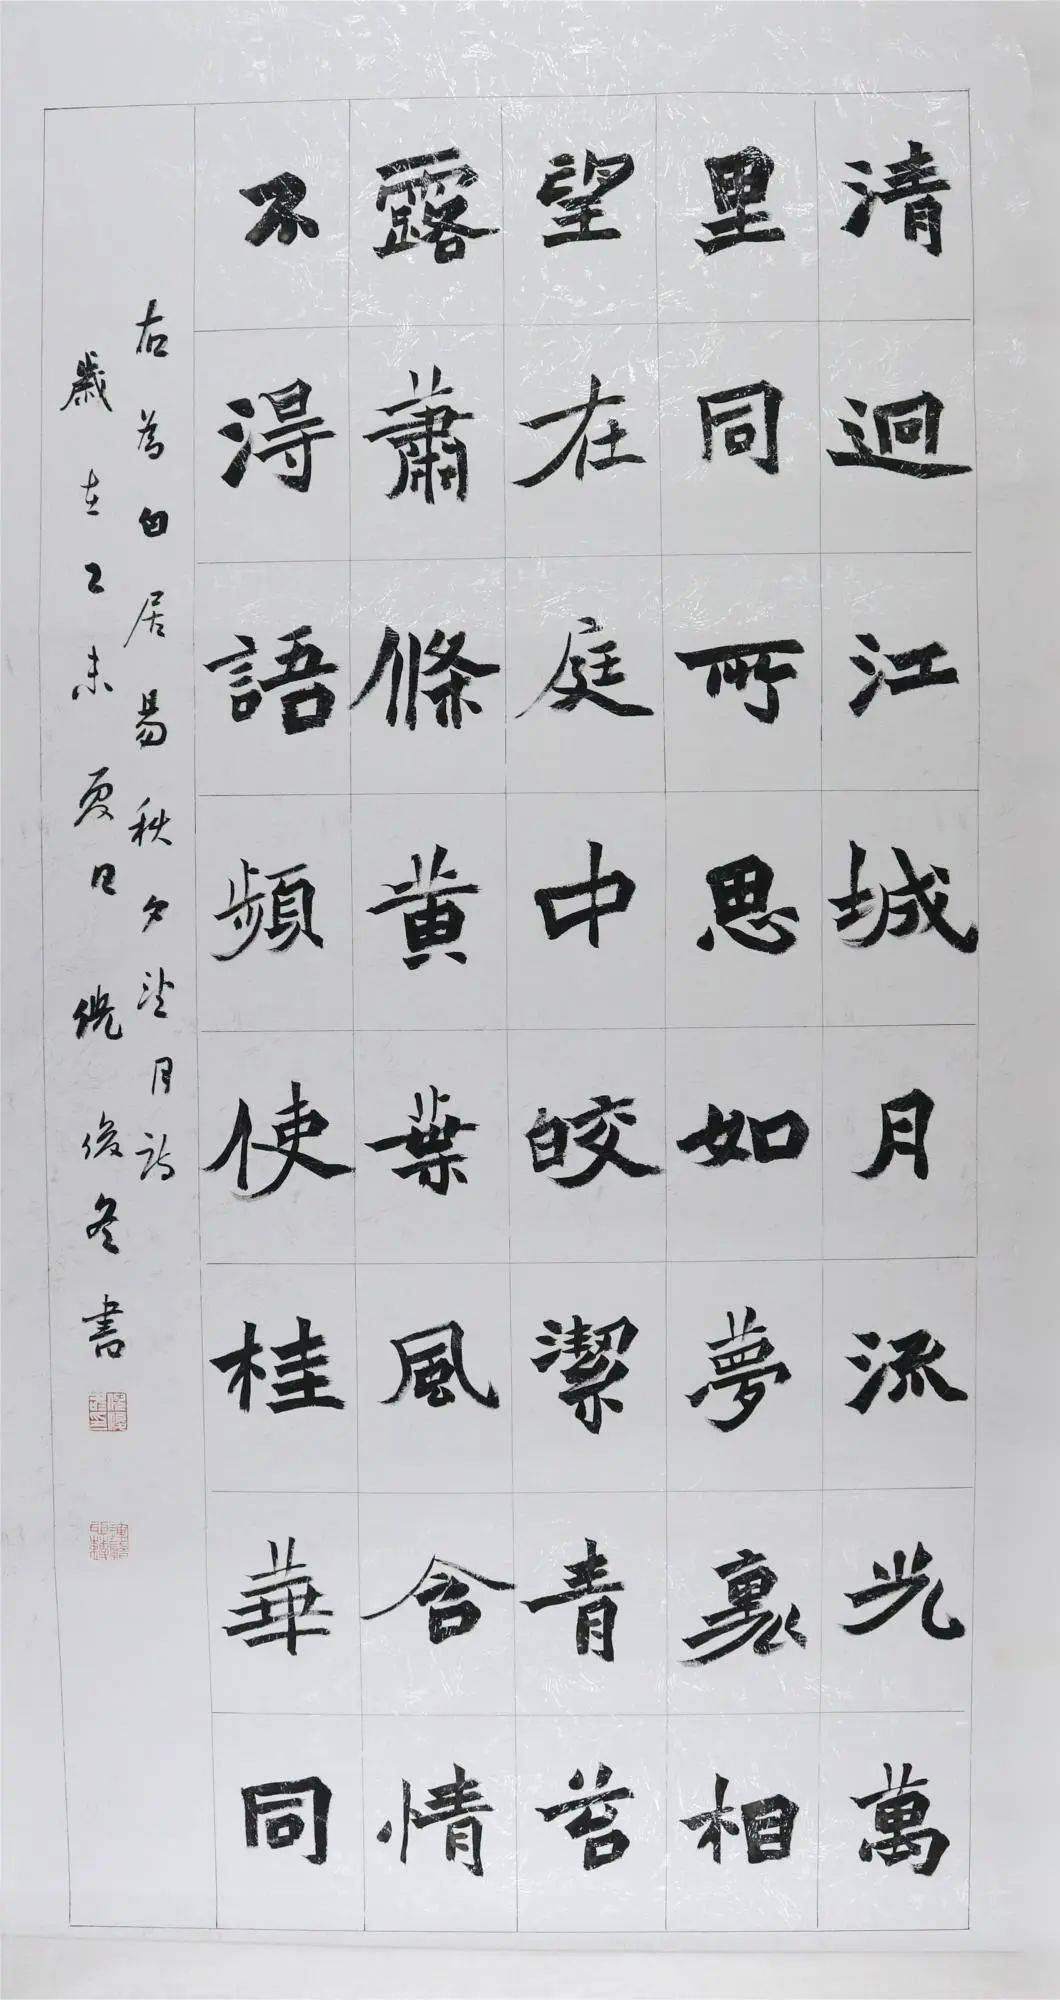 清迥江城月流光萬
里同所思如夢裏相
望在庭中皎潔青苔
露蕭條黃葉風含情
不得語頻使桂華同
右為白居易秋夕望月詩
歲在乙未夏日倪俊冬書